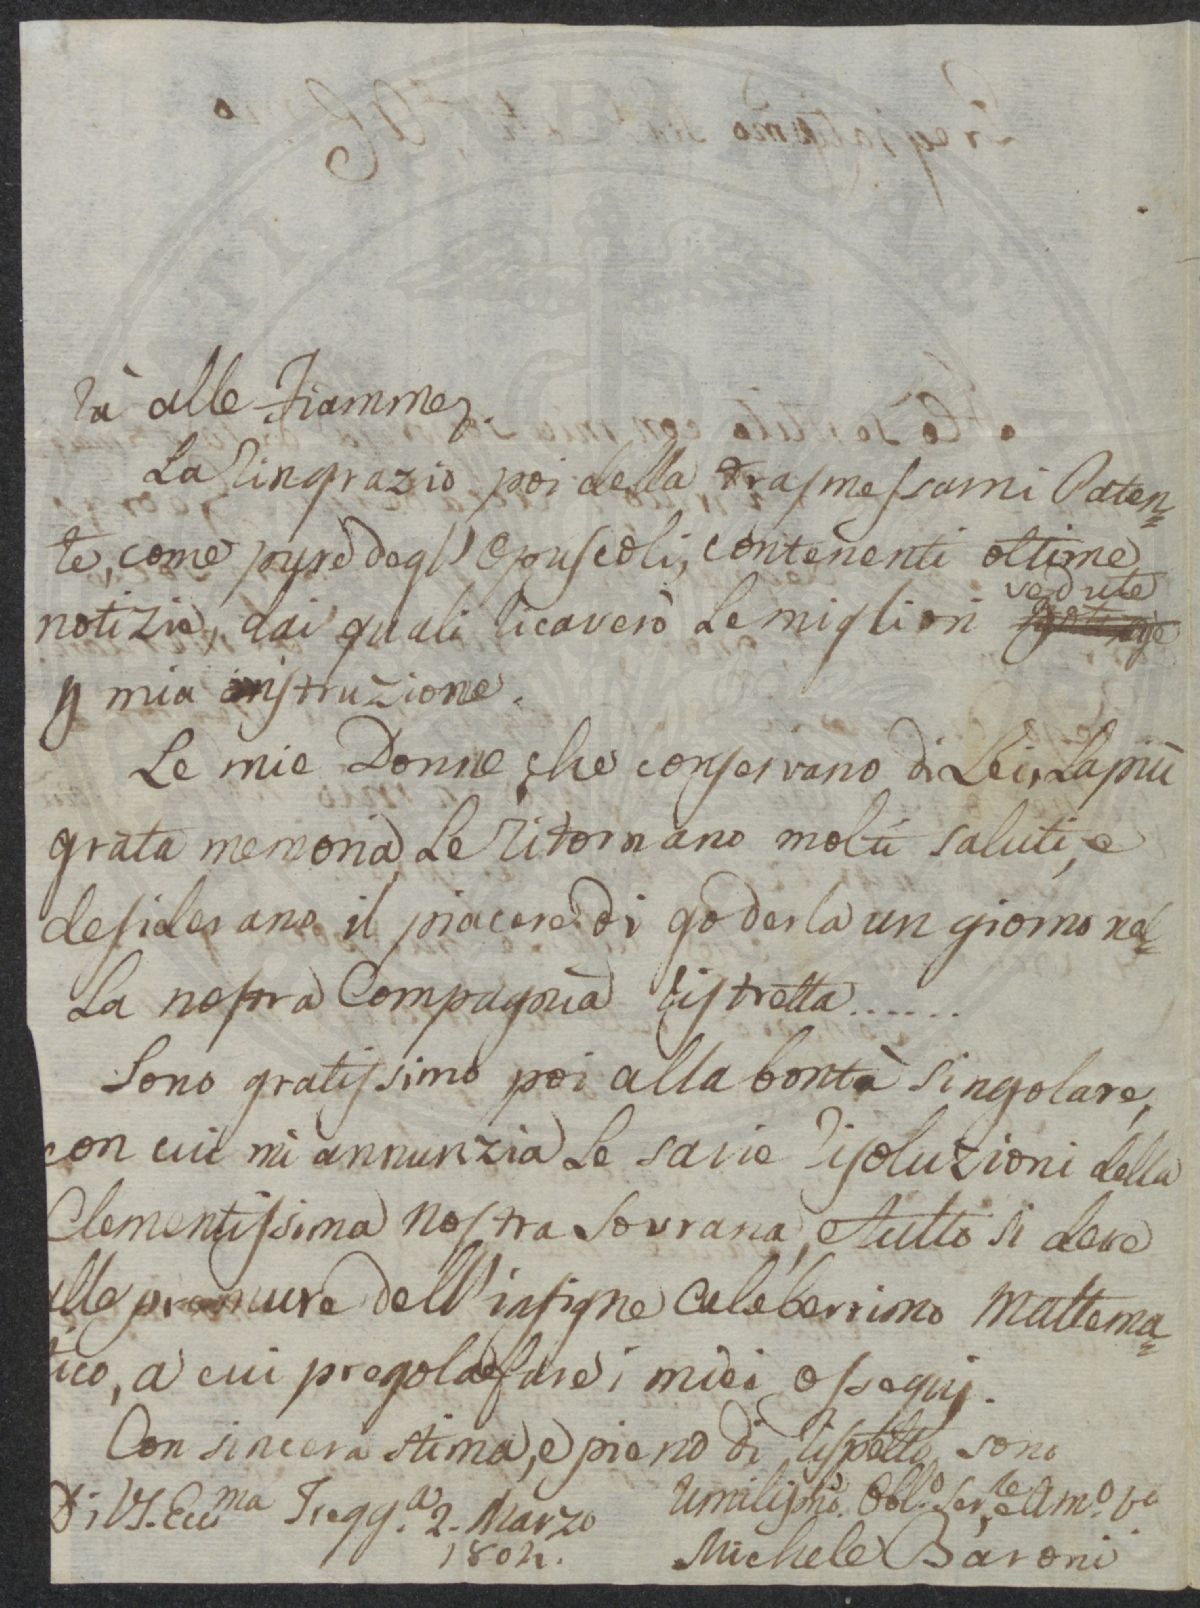 rà alle Fiamme.
La ringrazio poi della trasmessami Paten=
te, come pure degl'Opuscoli, contenenti ottime
notizie, dai quali ricaverò le migliori vedute
p mia instruzione.
Le mie Donne che conservano di Lei la più
grata memoria, Le ritornano molti saluti, e
desiderano il piacere di goderla un giorno nel=
la nostra Compagnia ristretta......
Sono gratissimo poi alla bontà singolare,
con cui mi annunzia le savie risoluzioni della
Clementissima nostra Sovrana, e tutto si deve
alle premure dell'insigne Celeberrimo Mattema=
tico, a cui pregola fare i miei ossequj.
Con sincera stima, e pieno di rispetto sono
Di VS. Ecc.ma Tregg.a 2. Marzo
1802.
Umiliss.mo Obb.o Ser.te e Am.o vo
Michele Baroni